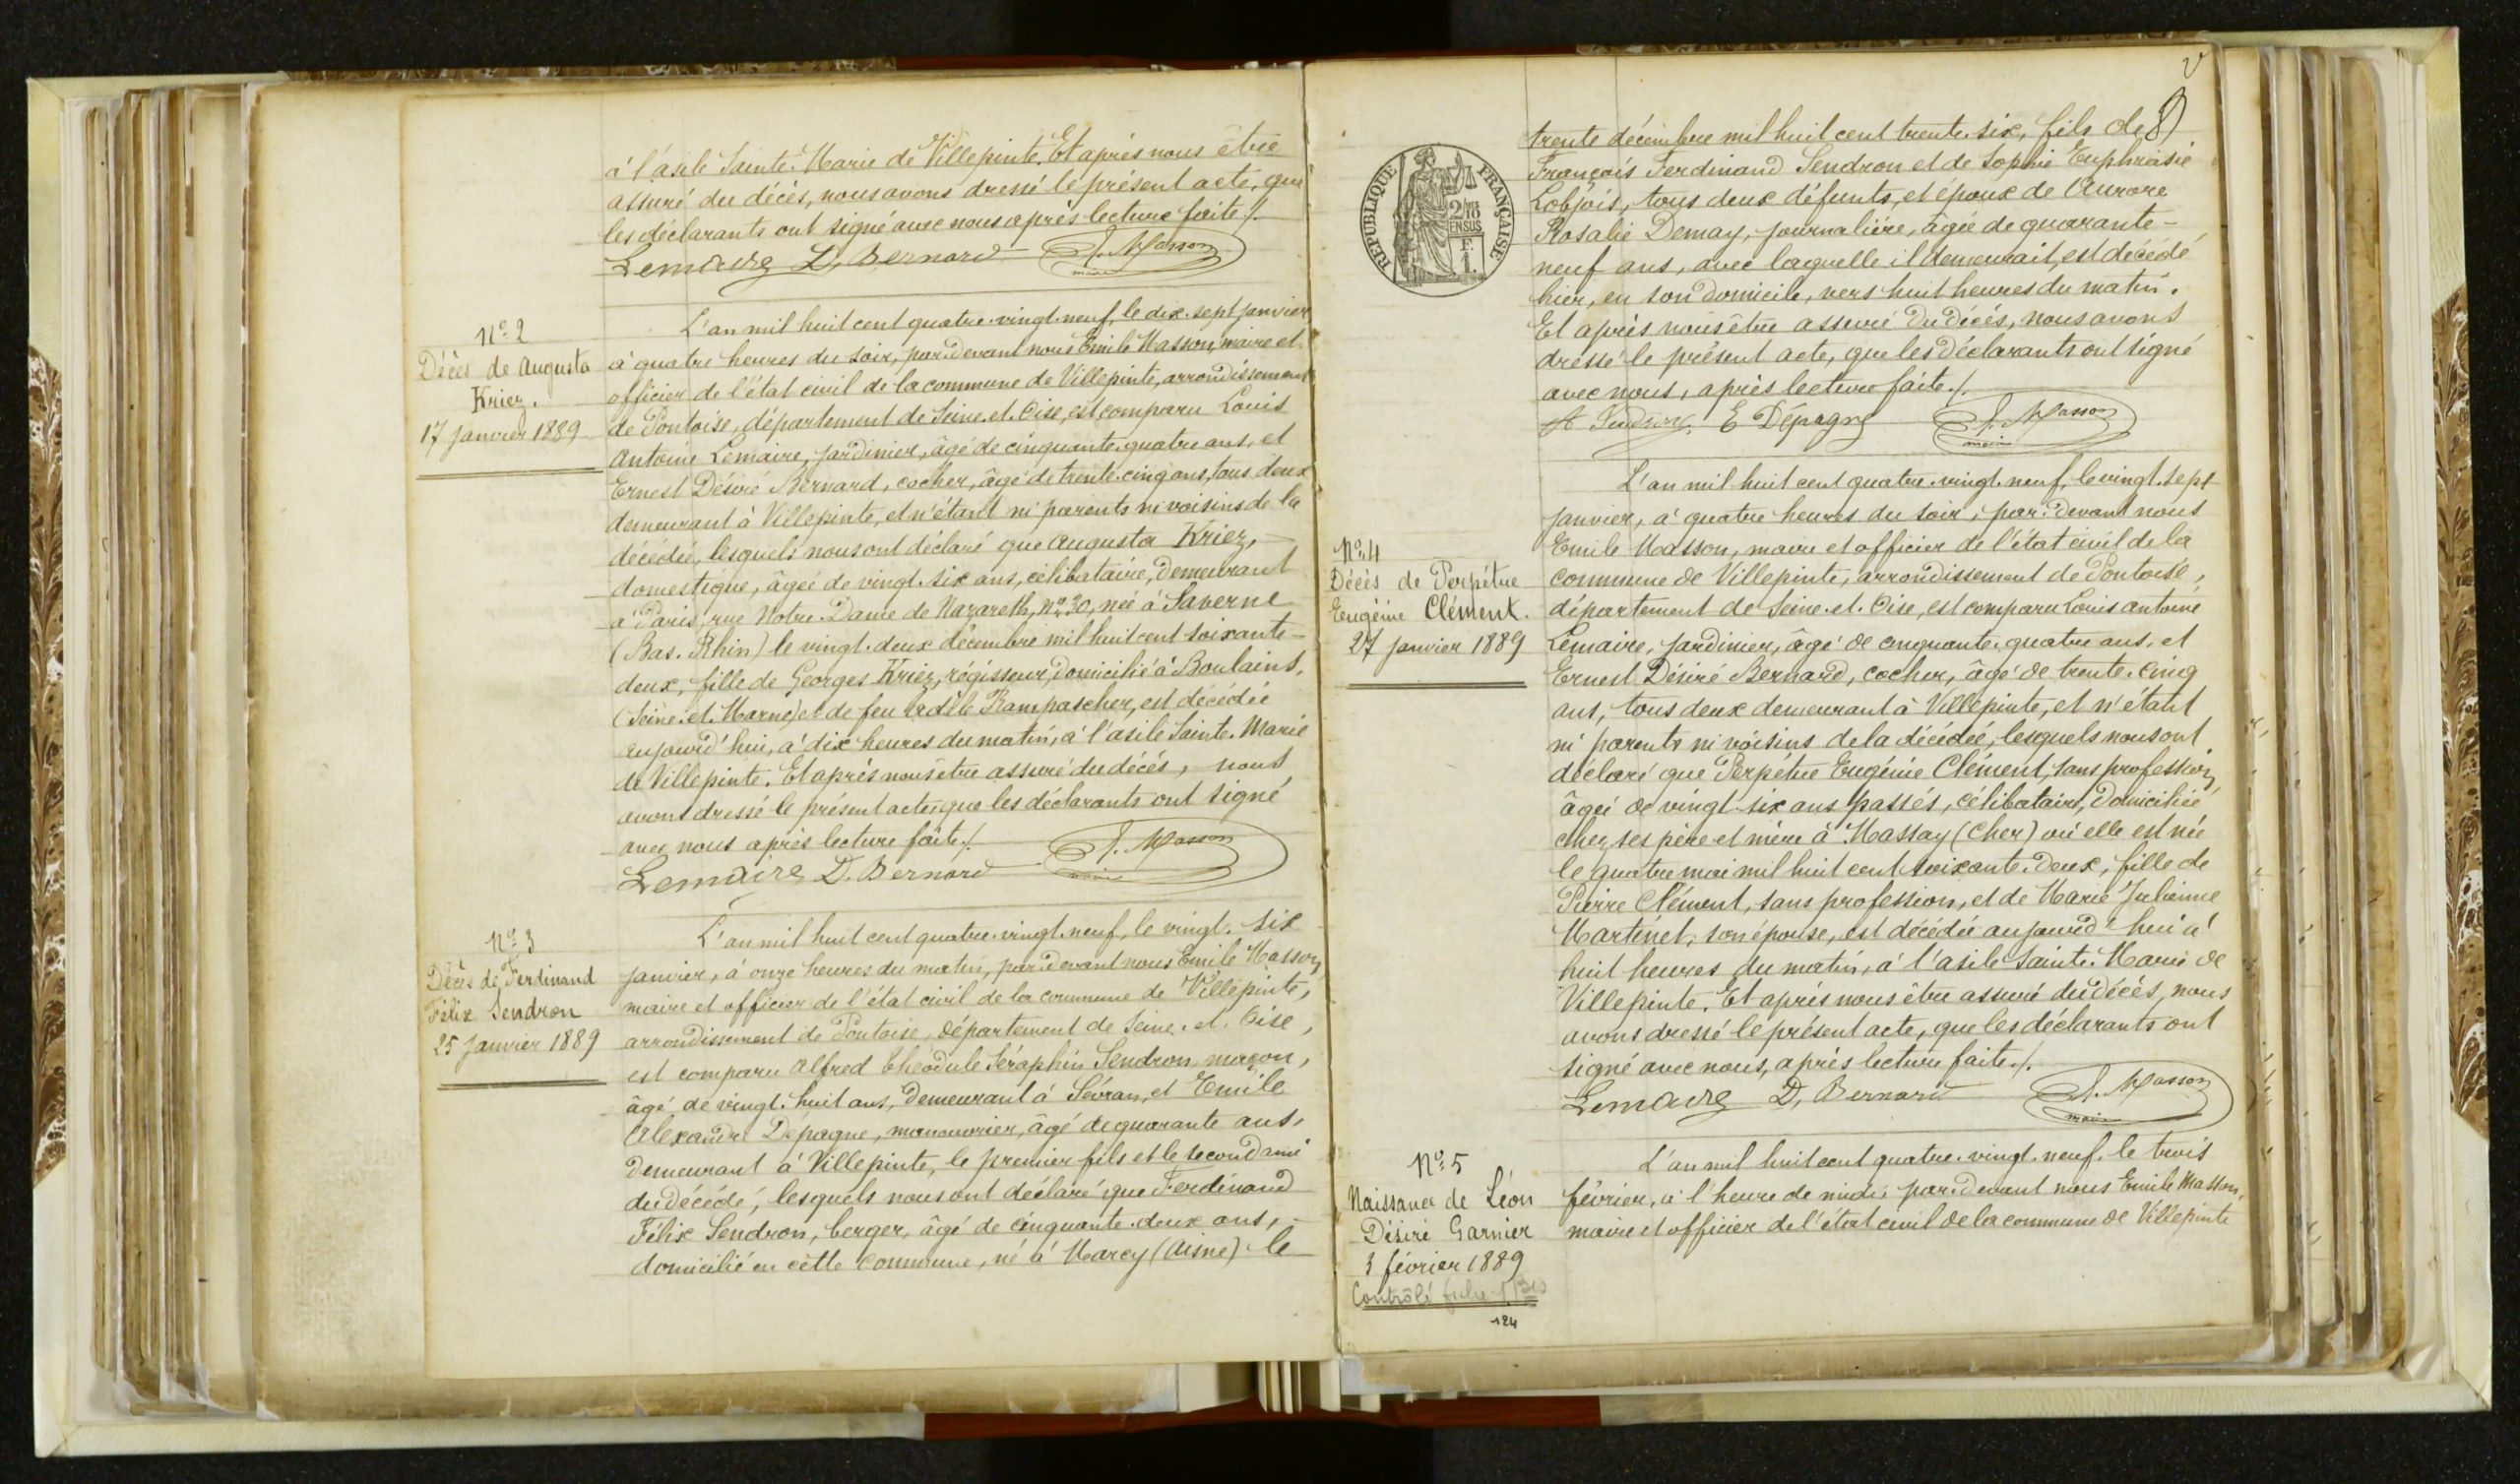 à l'asile Sainte-Marie de Villepinte. Et après nous être
assuré du décès, nous avons dressé le présent acte, que
les déclarants ont signé avec nous après lecture faite./.
Lemaire D. Bernard E. Masson
maire
N° 2
Décès de Augusta
Kriez.
17 janvier 1889
L'an mil huit cent quatre-vingt-neuf, le dix-sept janvier
à quatre heures du soir, par-devant nous Emile Masson, maire et
officier de l'état civil de la commune de Villepinte, arrondissement
de Pontoise, département de Seine-et-Oise, est comparu Louis
Antoine Lemaire, jardinier, âgé de cinquante-quatre ans, et
Ernest Désiré Bernard, cocher, âgé de trente-cinq ans, tous deux
demeurant à Villepinte, et n'étant ni parents ni voisins de la
décédée, lesquels nous ont déclaré que Augusta Kriez,
domestique, âgée de vingt-six ans, célibataire, demeurant
à Paris, rue Notre-Dame de Nazareth, N° 30, née à Saverne
(Bas-Rhin) le vingt-deux décembre mil huit cent soixante-
deux, fille de Georges Kriez, régisseur, domicilié à Boulains,
(Seine-et-Marne) et de feu Adèle Rampascher, est décédée
aujourd'hui, à dix heures du matin, à l'asile Sainte-Marie
de Villepinte. Et après nous être assuré du décès, nous
avons dressé le présent acte, que les déclarants ont signé
avec nous après lecture faite./.
Lemaire D. Bernard E. Masson
maire
N° 3
Décès de Ferdinand
Félix Sendron
25 janvier 1889
L'an mil huit cent quatre-vingt-neuf, le vingt-six
janvier, à onze heures du matin, par-devant nous Emile Masson,
maire et officier de l'état civil de la commune de Villepinte,
arrondissement de Pontoise, département de Seine-et-Oise,
est comparu Alfred Théodule Séraphin Sendron, maçon,
âgé de vingt-huit ans, demeurant à Sévran, et Emile
Alexandre Dépagne, manouvrier, âgé de quarante ans,
demeurant à Villepinte, le premier fils et le second ami
du décédé, lesquels nous ont déclaré que Ferdinand
Félix Sendron, berger, âgé de cinquante-deux ans,
domicilié en cette commune, né à Marcy (Aisne) le
RÉPUBLIQUE FRANÇAISE
2/10
EN SUS
F.
1.
trente décembre mil huit cent trente-six, fils de
François Ferdinand Sendron et de Sophie Euphrasie
Lobjois, tous deux défunts, et époux de Aurore
Rosalie Demay, journalière, âgée de quarante-
neuf ans, avec laquelle il demeurait, est décédé
hier, en son domicile, vers huit heures du matin.
Et après nous être assuré du décès, nous avons
dressé le présent acte, que les déclarants ont signé
avec nous, après lecture faite./.
A Sendron E Depagne E. Masson
maire
N° 4
Décès de Perpétue
Eugénie Clément.
27 janvier 1889
L'an mil huit cent quatre-vingt-neuf, le vingt-sept
janvier, à quatre heures du soir, par-devant nous
Emile Masson, maire et officier de l'état civil de la
commune de Villepinte, arrondissement de Pontoise,
département de Seine-et-Oise, est comparu Louis Antoine
Lemaire, jardinier, âgé de cinquante-quatre ans, et
Ernest Désiré Bernard, cocher, âgé de trente-cinq
ans, tous deux demeurant à Villepinte, et n'étant
ni parents ni voisins de la décédée, lesquels nous ont
déclaré que Perpétue Eugénie Clément, sans profession,
âgée de vingt-six ans passés, célibataire, domiciliée
chez ses père et mère à Massay (Cher) où elle est née
le quatre mai mil huit cent soixante-deux, fille de
Pierre Clément, sans profession, et de Marie Julienne
Martinet, son épouse, est décédée aujourd'hui à
huit heures du matin, à l'asile Sainte-Marie de
Villepinte. Et après nous être assuré du décès, nous
avons dressé le présent acte, que les déclarants ont
signé avec nous, après lecture faite./.
Lemaire D. Bernard E. Masson
maire
N° 5
Naissance de Léon
Désiré Garnier
3 février 1889
Contrôlé
124
L'an mil huit cent quatre-vingt-neuf, le trois
février, à l'heure de midi, par-devant nous Emile Masson,
maire et officier de l'état civil de la commune de Villepinte